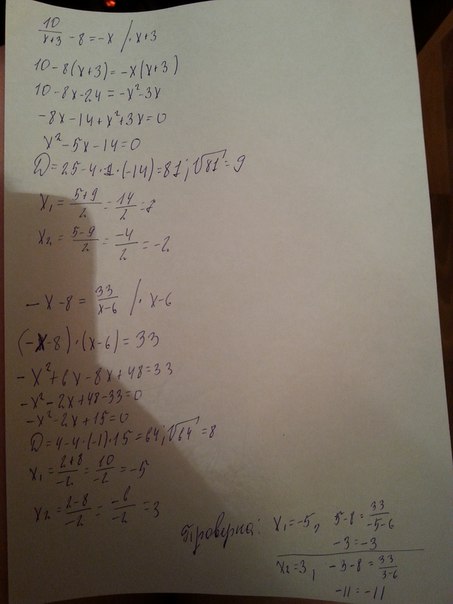 10/(x+3) - 8 = -x / · x+3
10-8(x+3) = -x(x+3)
10-8x-24 = -x²-3x
-8x-14+x²+3x=0
x²-5x-14=0
D=25-4·1·(-14)=81; √81=9
x₁ = (5+9)/2 = 14/2 = 7
x₂ = (5-9)/2 = -4/2 = -2
-x-8 = 33/(x-6) / · x-6
(-x-8)·(x-6) = 33
-x²+6x-8x+48=33
-x²-2x+48-33=0
-x²-2x+15=0
D=4-4·(-1)·15=64; √64=8
x₁ = (2+8)/-2 = 10/-2 = -5
x₂ = (2-8)/-2 = -6/-2 = 3
Проверка: x₁=-5, 5-8 = 33/(-5-6)
-3=-3
x₂=3, -3-8 = 33/(3-6)
-11 = -11